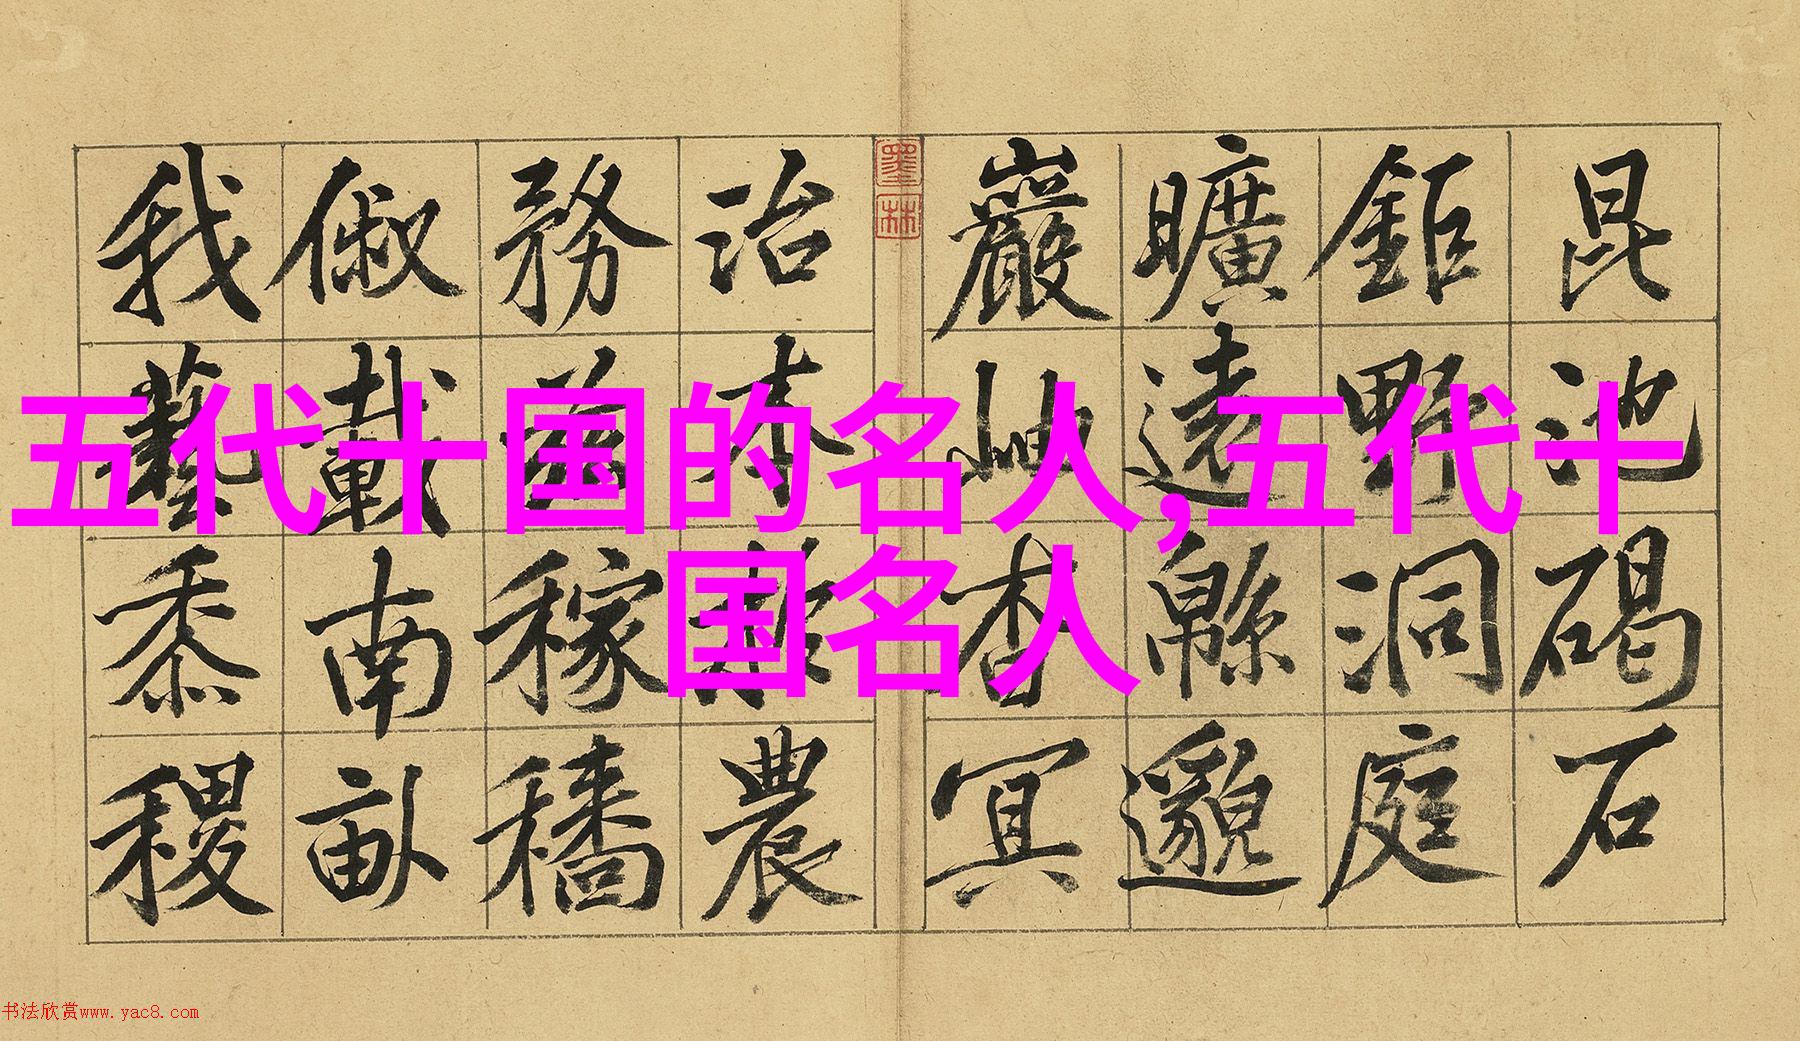 五代十国的名人,五代十
国名人
昆池碣石
鉅野洞庭
曠遠緜邈
巖岫杳冥
墨林
治本於農
務茲稼穡
俶載南畝
我藝黍稷
书法欣赏www.yac8.com